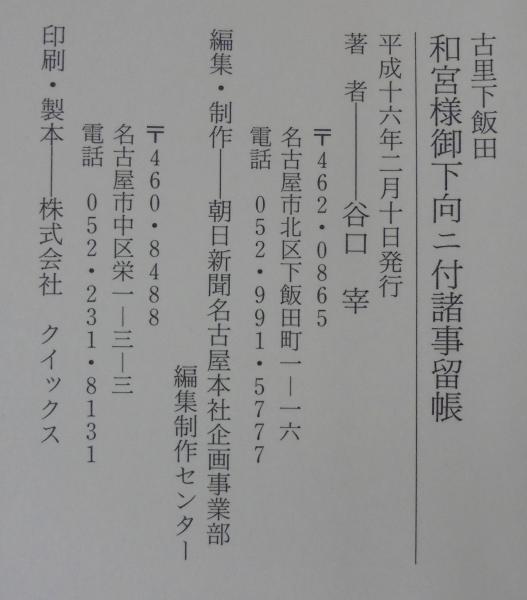 古里下飯田
和宮様御下向ニ付諸事留帳
平成十六年二月十日発行
著 者――谷口 宰
〒462・0865
名古屋市北区下飯田町一―一六
電話 052・991・5777
編集・制作――朝日新聞名古屋本社企画事業部
編集制作センター
〒460・8488
名古屋市中区栄一―三―三
電話 052・231・8131
印刷・製本――株式会社 クイックス